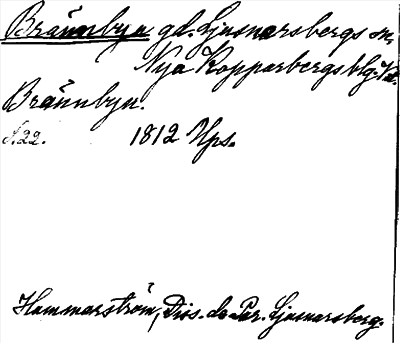 Brännbyn gd. Ljusnarsbergs sn,
Nya Kopparbergs blg.
Brännbyn.
s.22. 1812 Ups.
Hammarström, Diss. de Par. Ljusnarsberg.